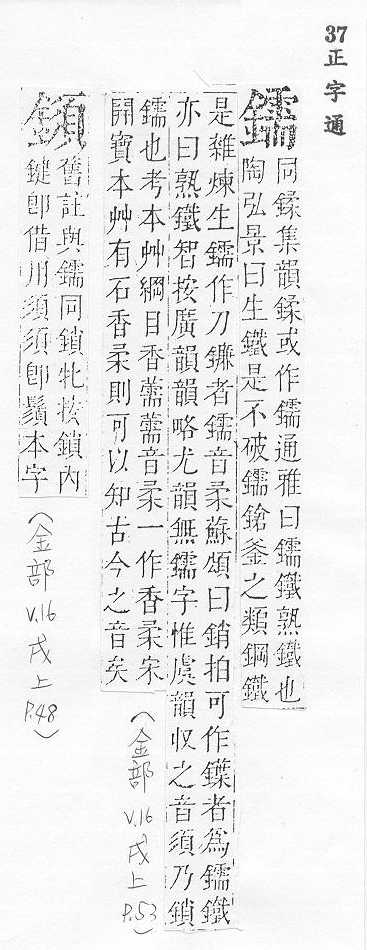 37
正字通
鑐
同鍒集韻鍒或作鑐通雅曰鑐鐵熟鐵也
陶弘景曰生鐵是不破鑐鎗釜之類鋼鐵
是雜煉生鑐作刀鐮者鑐音柔蘇頌曰銷拍可作鍱者爲鑐鐵
亦曰熟鐵智按廣韻韻略尤韻無鑐字惟虞韻収之音須乃鎖
鑐也考本艸綱目香薷薷音柔一作香柔宋
開寶本艸有石香柔則可以知古今之音矣
(金部 v.16 戌上 P.53)
舊註與鑐同鎖牝按鎖內
鍵卽借用須須卽鬚本字
(金部 v.16 戌上 P.48)